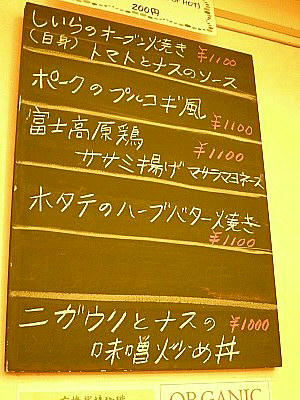 OF HOT)
200円
しいらのオーブン焼き ¥1100
(白身)トマトとナスのソース
ポークのプルコギ風
¥1100
富士高原鶏 ¥1100
ササミ揚げマサラマヨネーズ
ホタテのハーブバター焼き
¥1100
ニガウリとナスの ¥1000
味噌炒め丼
ORGANIC